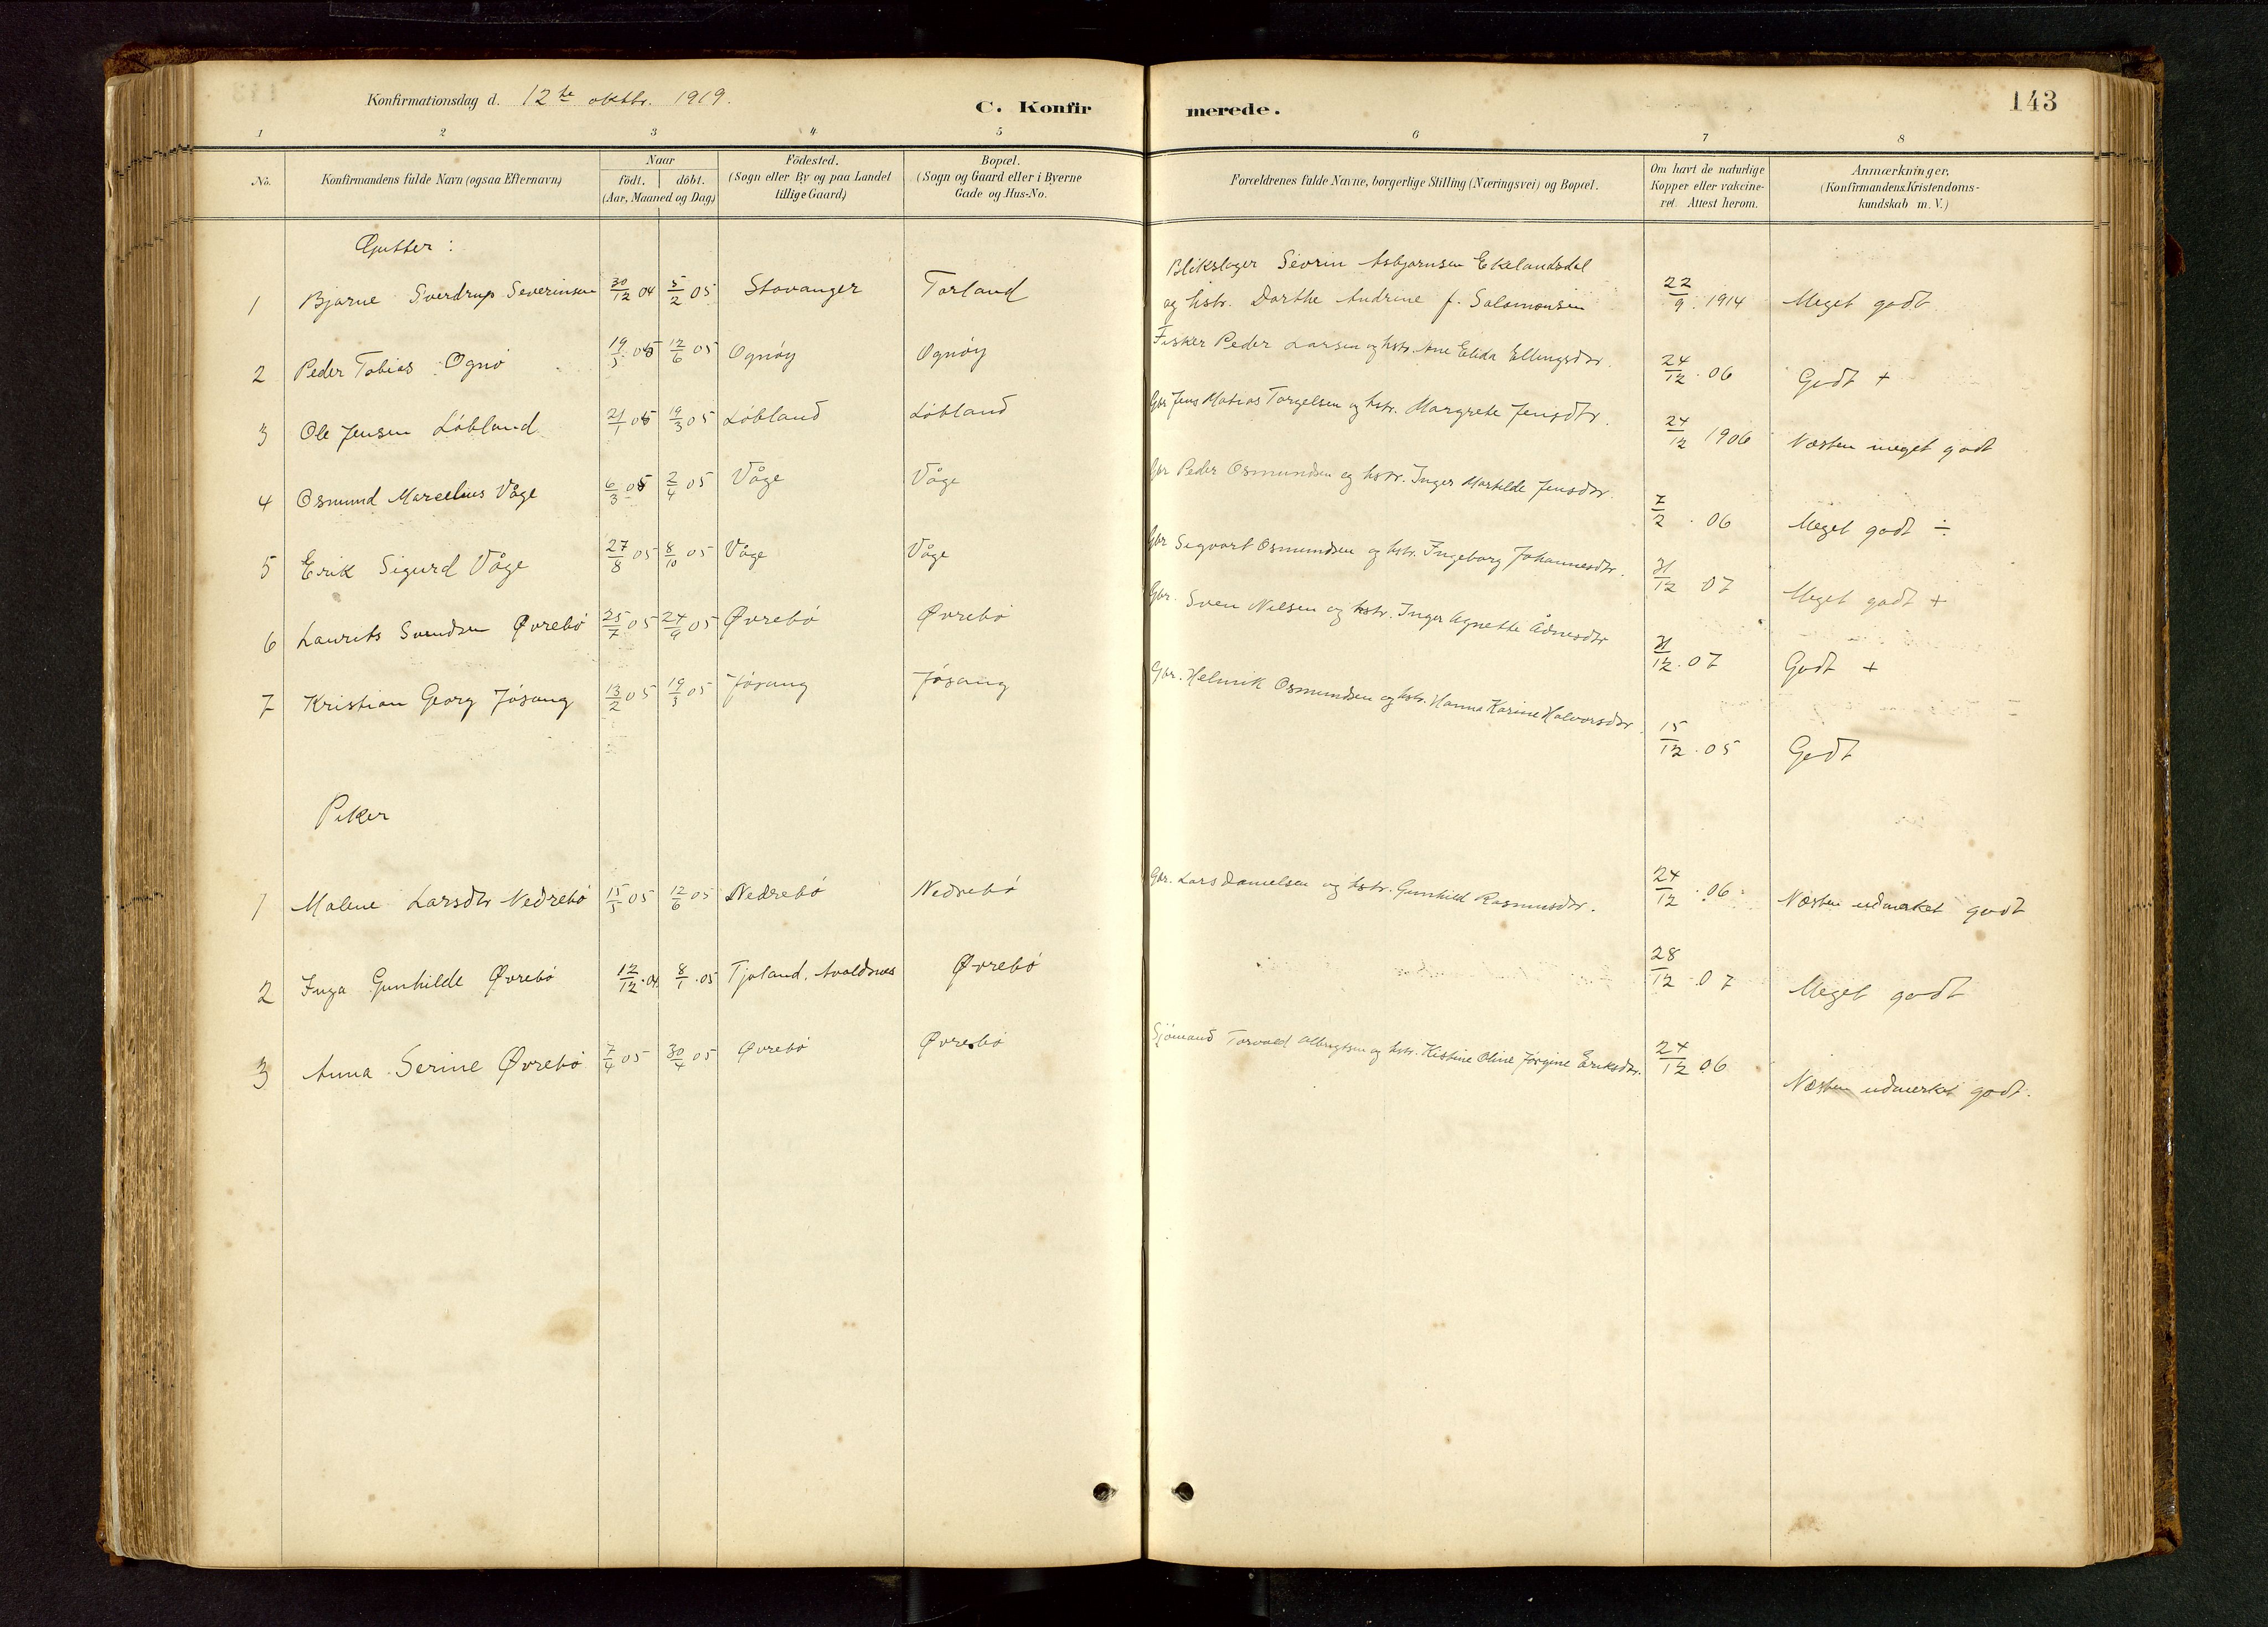 Konfirmationsdag d. 12te oktbr. 1919.
C. Konfirmerede.
143
1 2 3 4 5 6 7 8
No. | Konfirmandens fulde Navn (ogsaa Efternavn) | Naar födt. döbt. (Aar, Maaned og Dag) | Födested. (Sogn eller By og paa Landet tillige Gaard) | Bopæl. (Sogn og Gaard eller i Byerne Gade og Hus-No. | Forældrenes fulde Navne, borgerlige Stilling (Næringsvei) og Bopæl. | Om havt de naturlige Kopper eller vakcineret. Attest herom. | Anmærkninger. (Konfirmandens Kristendomskundskab m. V.)
Gutter:
1 Bjarne Sverdrup Severinsen 30/12 04 5/2 05 Stavanger Torland Blikslager Sevrin Asbjørnsen Ekelandsdal og hstr. Dorthe Andrine f. Salomonsen 22/9. 1914 Meget godt
2 Peder Tobias Ognö 19/5. 05 12/6 05 Ognöy Ognöy Fisker Peder Larsen og hstr. Ane Elida Ellingsdtr. 24/12. 06 Godt +
3 Ole Jensen Löbland 21/1 05 19/3 05 Löbland Löbland Gbr Jens Matias Torgelsen og hstr. Margrete Jensdtr. 24/12 1906 Næsten meget godt
4 Osmund Marcelius Våge 6/3 05 2/4 05 Våge Våge Gbr Peder Osmundsen og hstr. Inger Martilde Jensdtr. 7/2. 06 Meget godt ÷
5 Erik Sigurd Våge 27/8 05 8/10 05 Våge Våge Gbr Sigvart Osmundsen og hstr. Ingeborg Johannesdtr. 31/12 07 Meget godt +
6 Laurits Svendsen Øvrebö 25/7 05 24/9 05 Øvrebö Øvrebö Gbr. Sven Nilsen og hstr. Inger Agnette Ådnesdtr 31/12. 07 Godt +
7 Kristian Georg Jösang 13/2 05 19/3 05 Jösang Jösang Gbr. Helmik Osmundsen og hstr. Hanna Karine Halvorsdtr. 15/12. 05 Godt
Piker
1 Malene Larsdtr Nedrebö 15/5 05 12/6 05 Nedrebö Nedrebö Gbr. Lars Danielsen og hstr. Gunhild Rasmusdtr. 24/12. 06 Næsten udmerket godt
2 Inga Gunhilde Øvrebö 12/12. 04 8/1. 05 Tjoland, Avaldsnes Øvrebö 28/12. 07 Meget godt
3 Anna Serine Øvrebö 7/4 05 30/4 05 Øvrebö Øvrebö Sjömand Torvald Albrigtsen og hstr. Kistine Oline Jörgine Eriksdtr. 24/12 06 Næsten udmerket godt.